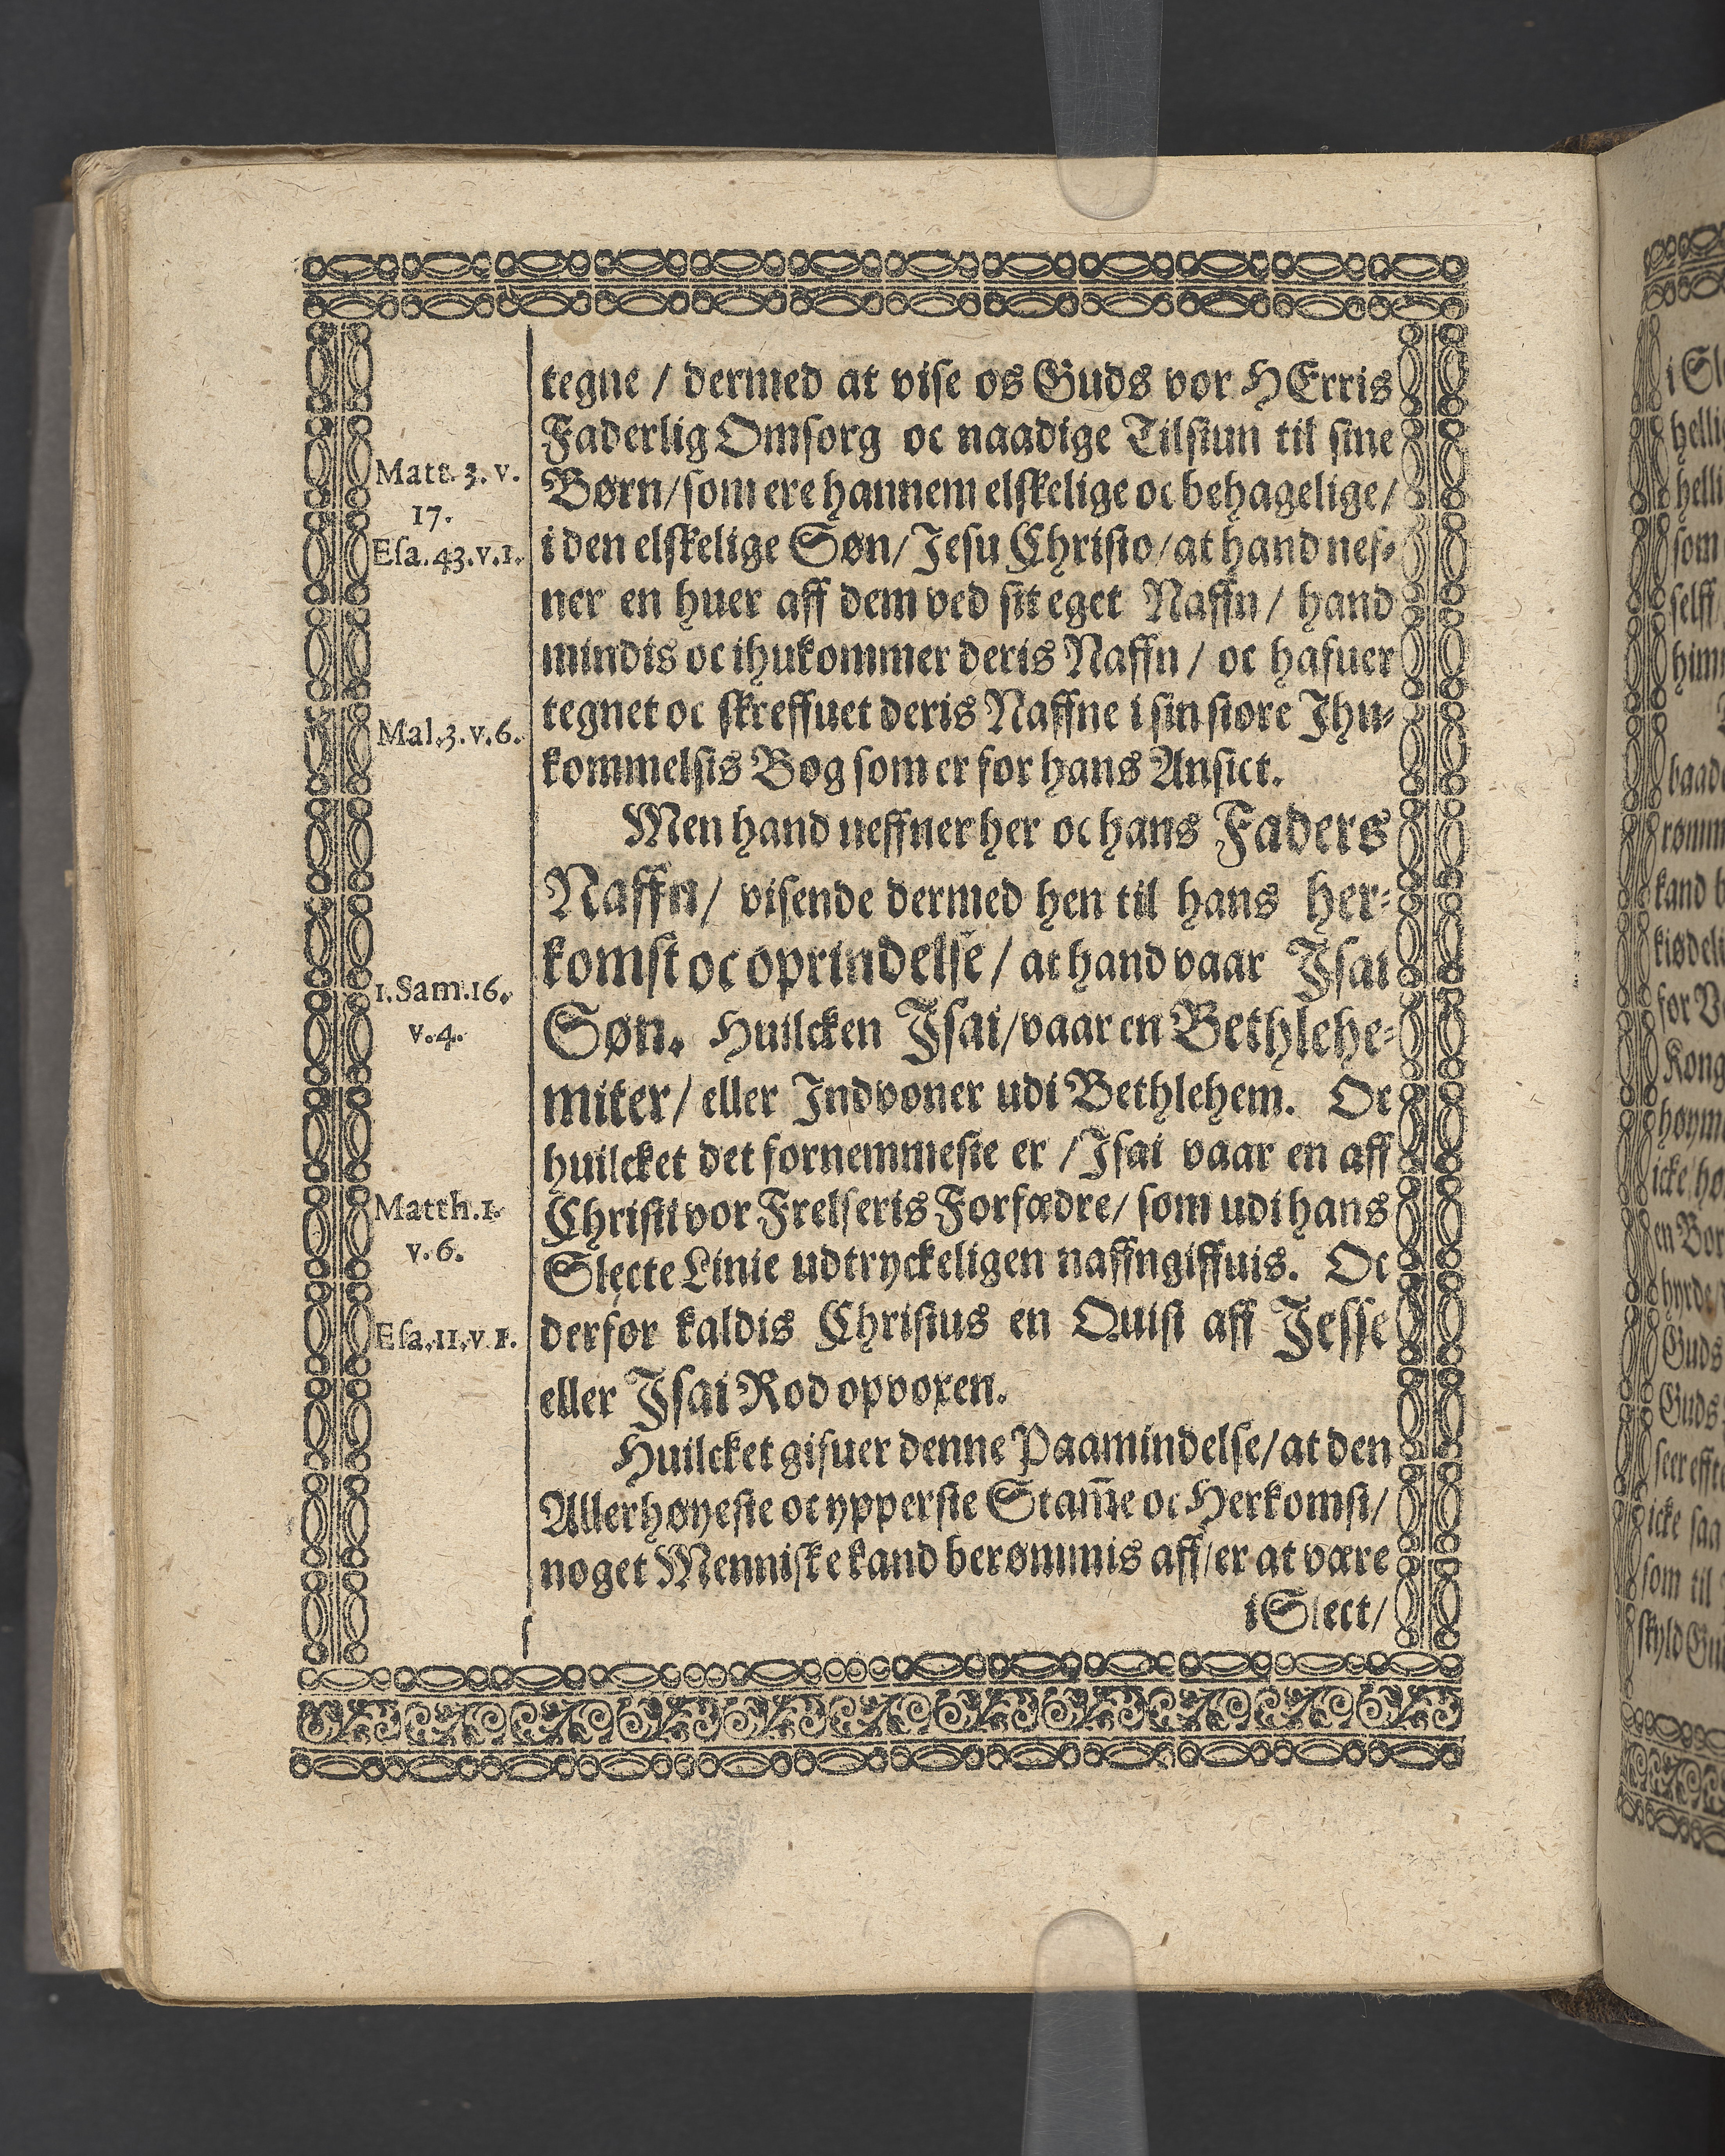 tegne / dermed at vise os Guds vor HErris
Faderlig Omsorg oc naadige Tilsiun til sine
Matt. 3. v.
17.
Børn/som ere hannem elskelige oc behagelige/
Esa. 43. v. 1.
i den elskelige Søn/Jesu Christo/at hand nef-
ner en huer aff dem ved sit eget Naffn/ hand
mindis oc ihukommer deris Naffn/ oc hafuer
Mal. 3. v. 6.
tegnet oc skreffuet deris Naffne i sin store Ihu-
kommelsis Bog som er for hans Ansict.
Men hand neffner her oc hans Faders
Naffn/ visende dermed hen til hans her-
komst oc oprindelse/at hand vaar Isai
1. Sam. 16.
v. 4.
Søn. Huilcken Isai/vaar en Bethlehe-
miter/ eller Indvoner udi Bethlehem. Oc
huilcket det fornemmeste er /Isai vaar en aff
Matth. 1.
v. 6.
Christi vor Frelseris Forfædre/ som udi hans
Slecte Linie udtryckeligen naffngiffuis. Oc
Esa. 11. v 1.
derfor kaldis Christus en Quist aff Jesse
eller Isai Rod opvoxen.
Huilcket gifuer denne Paamindelse/at den
Allerhøyeste oc ypperste Stam̅e oc Herkomst/
noget Menniske kand berømmis aff/er at være
i Slect/